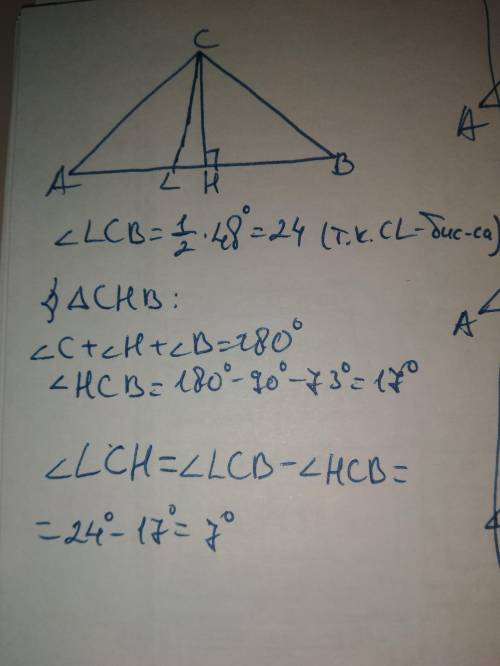 C
A L H B
A
∠LCB = 1/2 · 48° = 24 (т.к. CL-бис-са)
△CHB:
∠C+∠H+∠B=180°
A
∠HCB = 180° - 90° - 73° = 17°
∠LCH = ∠LCB - ∠HCB =
= 24° - 17° = 7°